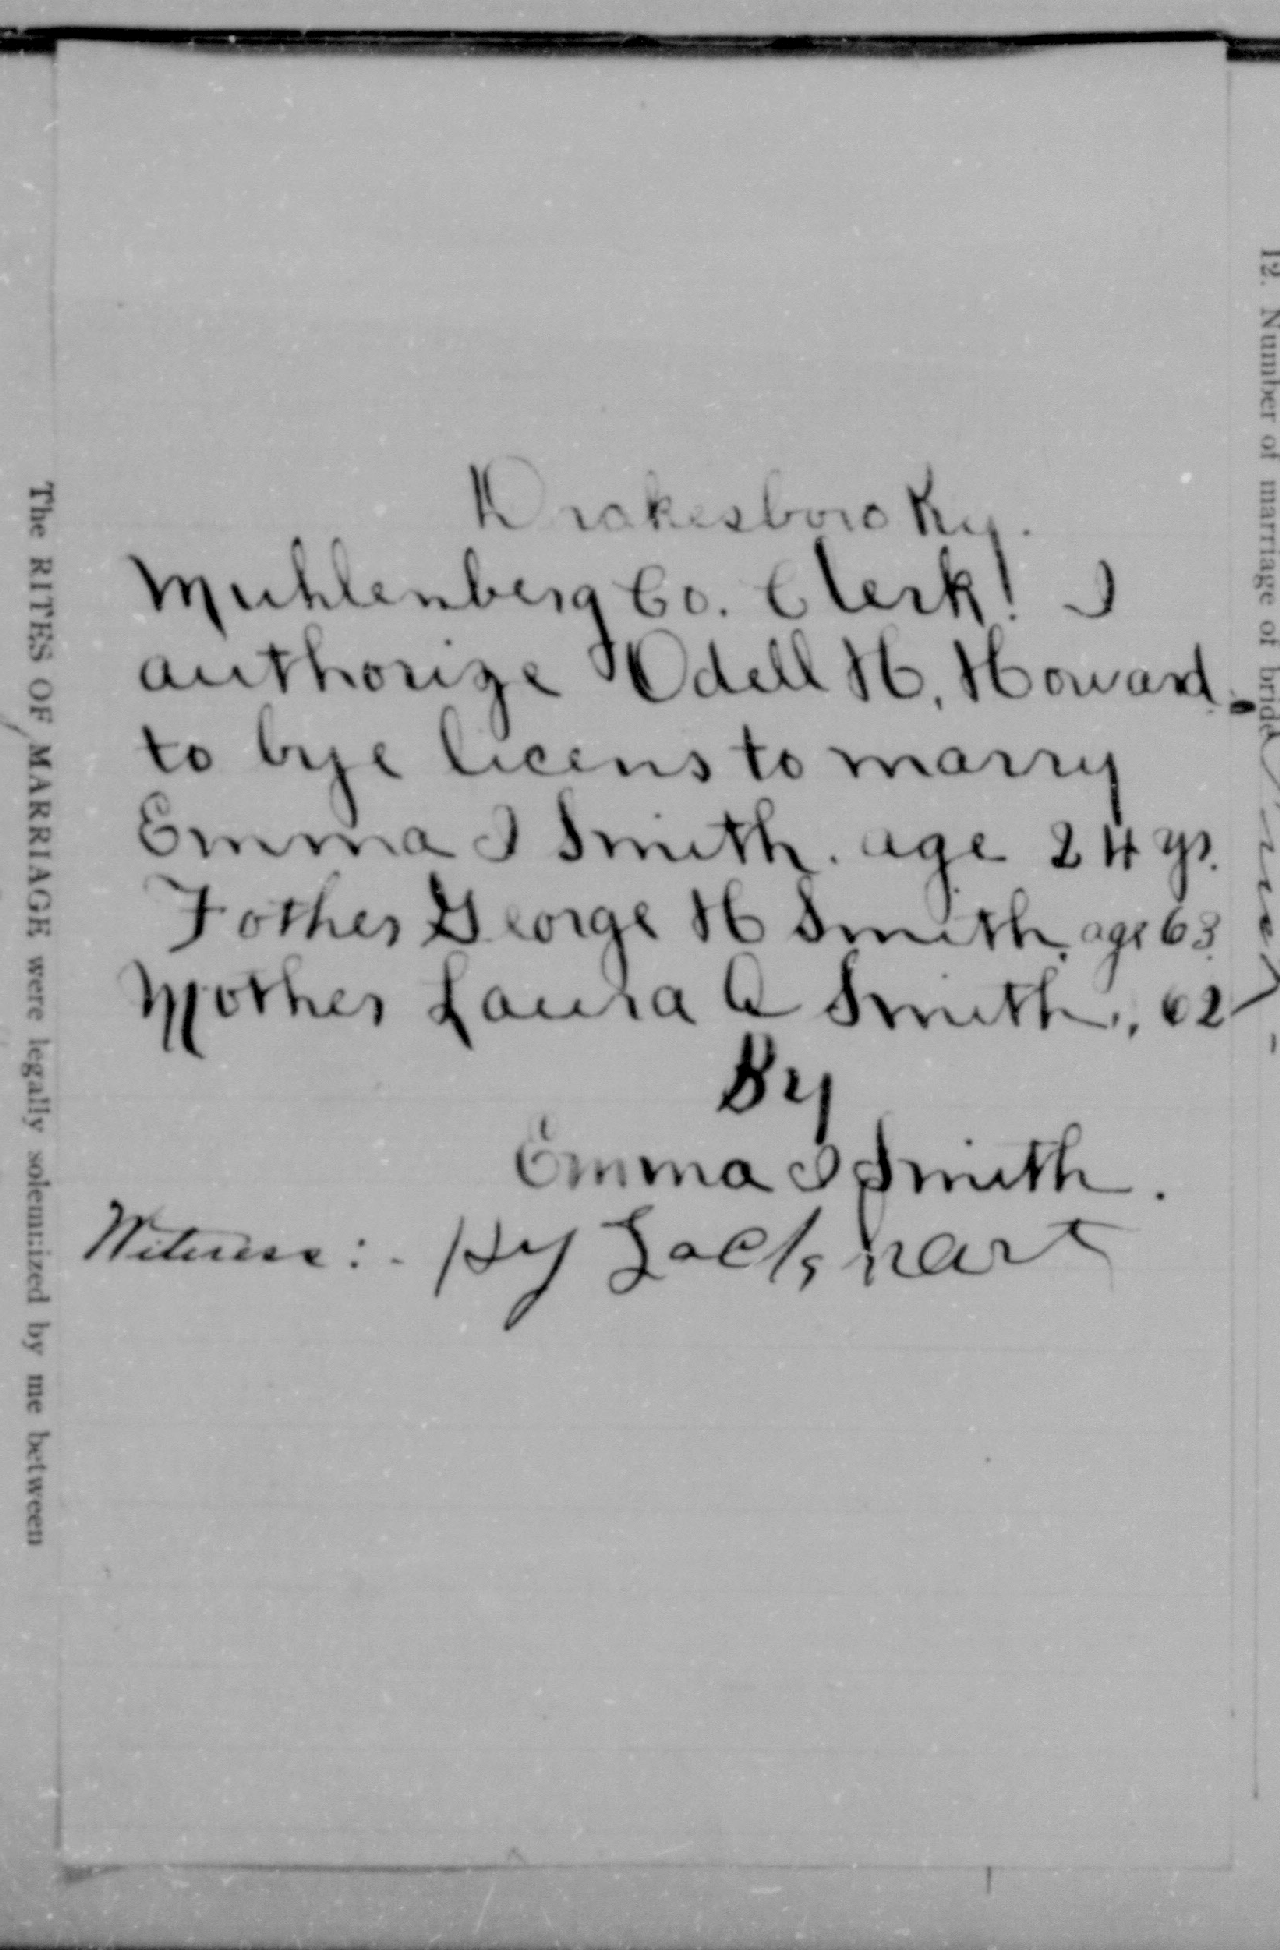 Drakesboro Ky.
Muhlenberg Co. Clerk! I
authorize Odell H. Howard
to bye licens to marry
Emma I Smith. age 24 ys.
Fother George H Smith, age 63.
Mother Laura A Smith ,, 62
By
Emma I Smith.
Witness:- Hy Lockhart
The RITES OF MARRIAGE were legally solemnized by me between
12. Number of marriage of bride